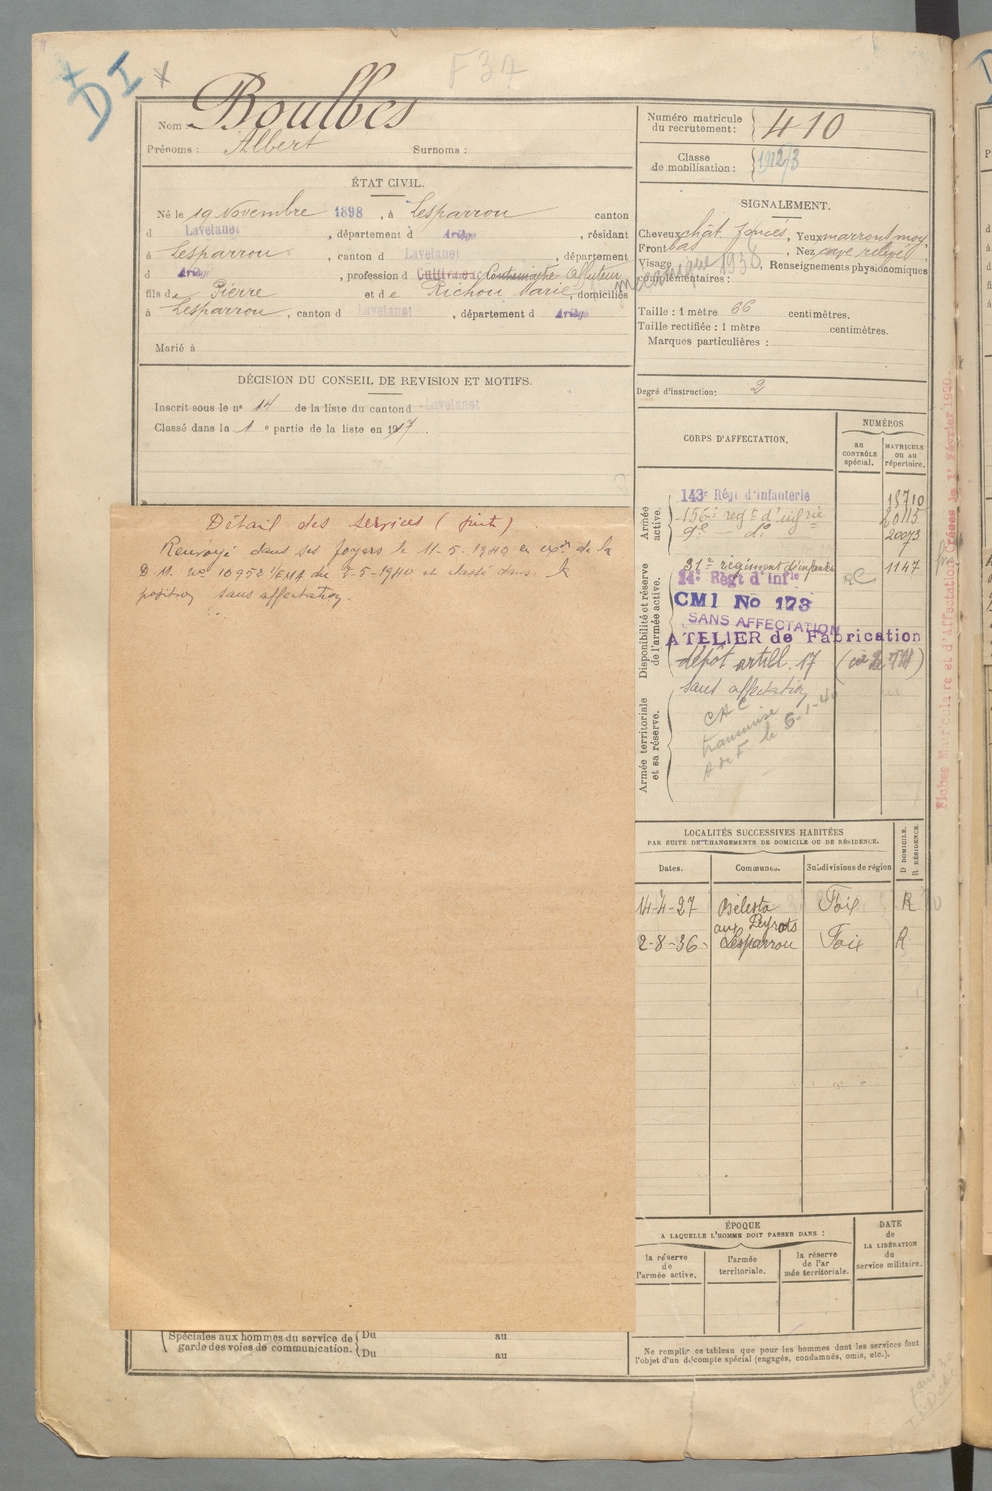 DI
F 37
Nom : Boulbes
Prénoms : Albert Surnoms :
ÉTAT CIVIL.
Né le 19 Novembre 1898, à Lesparrou canton
d Lavelanet, département d Ariège, résidant
à Lesparrou, canton d Lavelanet, département
d Ariège, profession d Cultivateur Contremaître Affuteur
fils de Pierre et de Richou Marie, domiciliés
à Lesparrou, canton d Lavelanet, département d Ariège
Marié à
DÉCISION DU CONSEIL DE REVISION ET MOTIFS.
Inscrit sous le nº 14 de la liste du canton d Lavelanet
Classé dans la 1e partie de la liste en 1917.
Détail des services (suite)
Renvoyé dans ses foyers le 11-5-1940 en exon de la
D M. no 10952 1/EMA du 2-5-1940 et classé dans la
position sans affectation.
Spéciales aux hommes du service de garde des voies de communication. Du au
Du au
Numéro matricule du recrutement : 410
Classe de mobilisation : 1912/3
SIGNALEMENT.
Cheveux chât foncés, Yeux marrons moy.
Front bas, Nez cave relevé
Visage, Renseignements physionomiques
complémentaires :
mécanique 1938
Taille : 1 mètre 66 centimètres.
Taille rectifiée : 1 mètre centimètres.
Marques particulières :
Degré d'instruction: 2
CORPS D'AFFECTATION.
NUMÉROS
au CONTRÔLE spécial.
MATRICULE ou au répertoire.
Armée active.
143e Régt d'Infanterie 15710
156e regt d'infrie 20115
9e — do — 20073
Disponibilité et réserve de l'armée active.
81e régiment d'infanterie RC 1147
14e Régt d'Infie
CMI No 173
SANS AFFECTATION
ATELIER de Fabrication
dépôt artill. 17
Armée territoriale et sa réserve.
sans affectation
CAC
transmise
A de F le 6-1-40
LOCALITÉS SUCCESSIVES HABITÉES
PAR SUITE DE CHANGEMENTS DE DOMICILE OU DE RÉSIDENCE.
Dates. Communes. Subdivisions de région D DOMICILE. R RÉSIDENCE.
14-4-27 Bélesta Foix R
aux Peyrats
2-8-36 Lesparrou Foix R
ÉPOQUE
A LAQUELLE L'HOMME DOIT PASSER DANS :
la réserve de l'armée active.
l'armée territoriale.
la réserve de l'armée territoriale.
DATE de LA LIBÉRATION du service militaire.
Ne remplir ce tableau que pour les hommes dont les services font
l'objet d'un décompte spécial (engagés, condamnés, omis, etc.).
Fiches Matriculaire et d'Affectation Créées le 1er Février 1920.